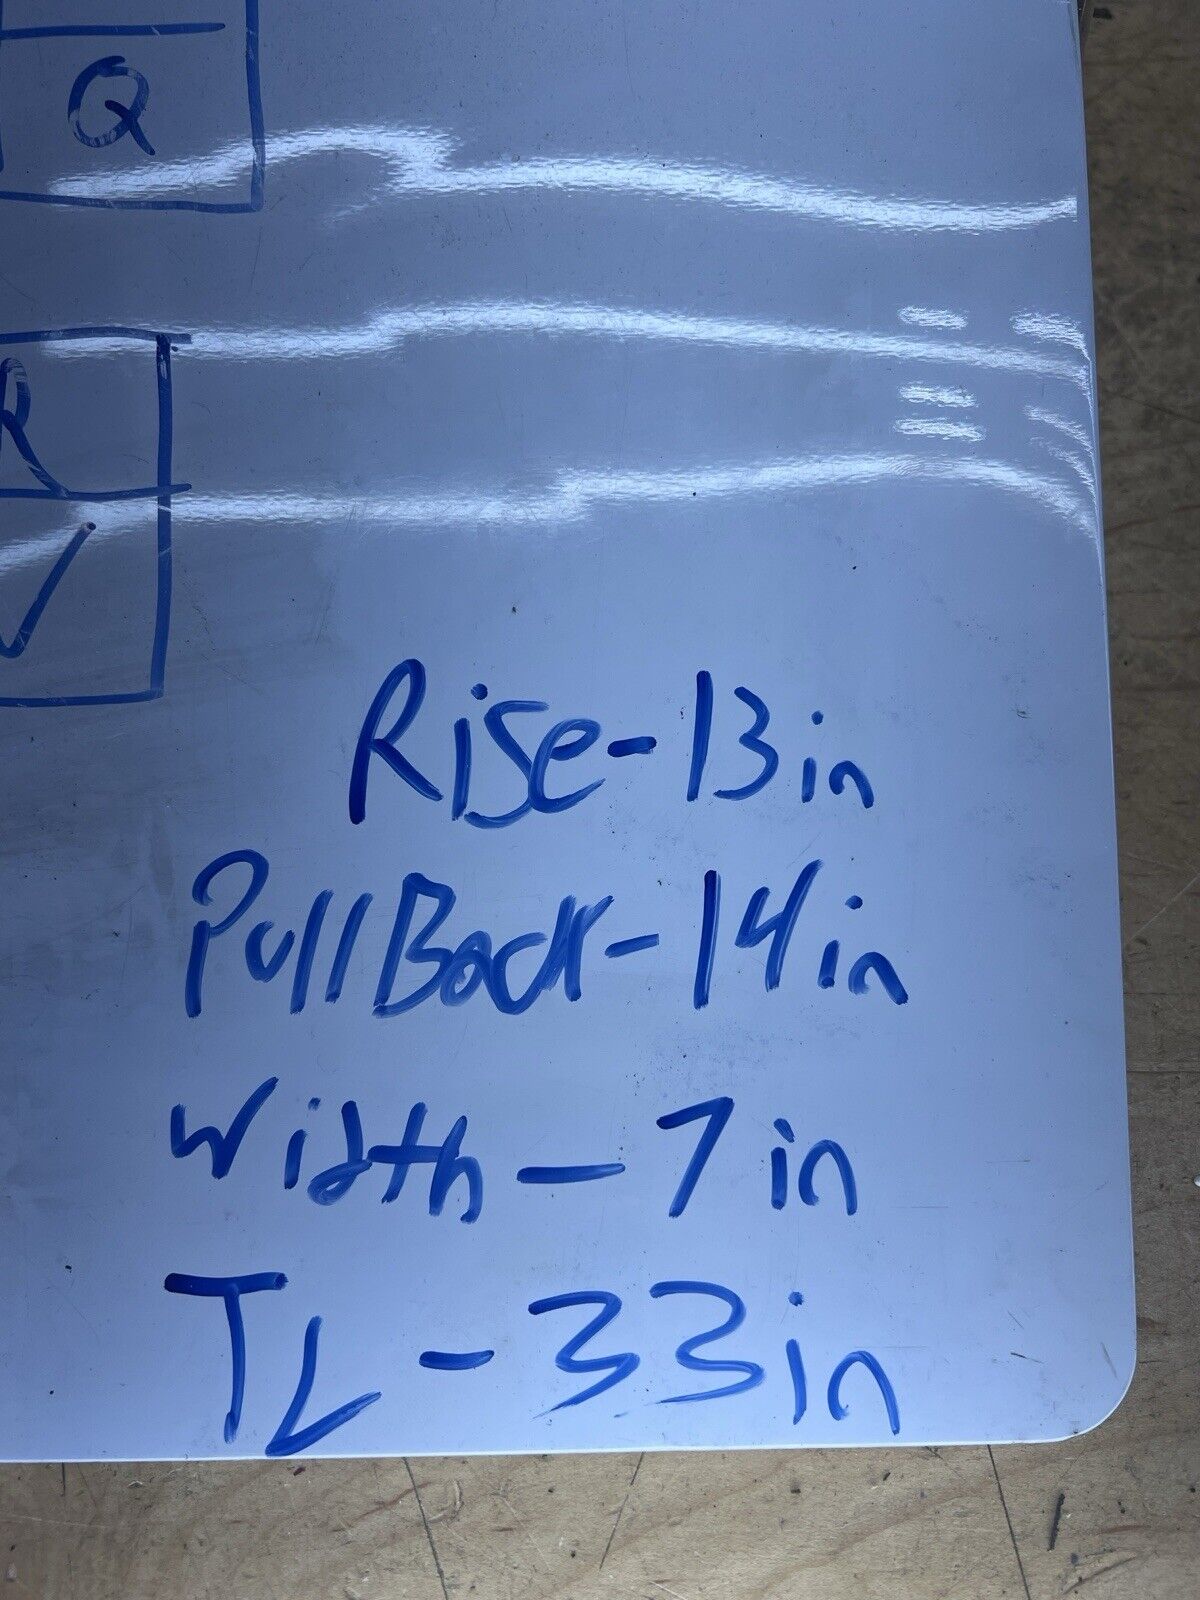 Q
R
Rise-13in
PullBack-14in
Width-7in
TL-33in